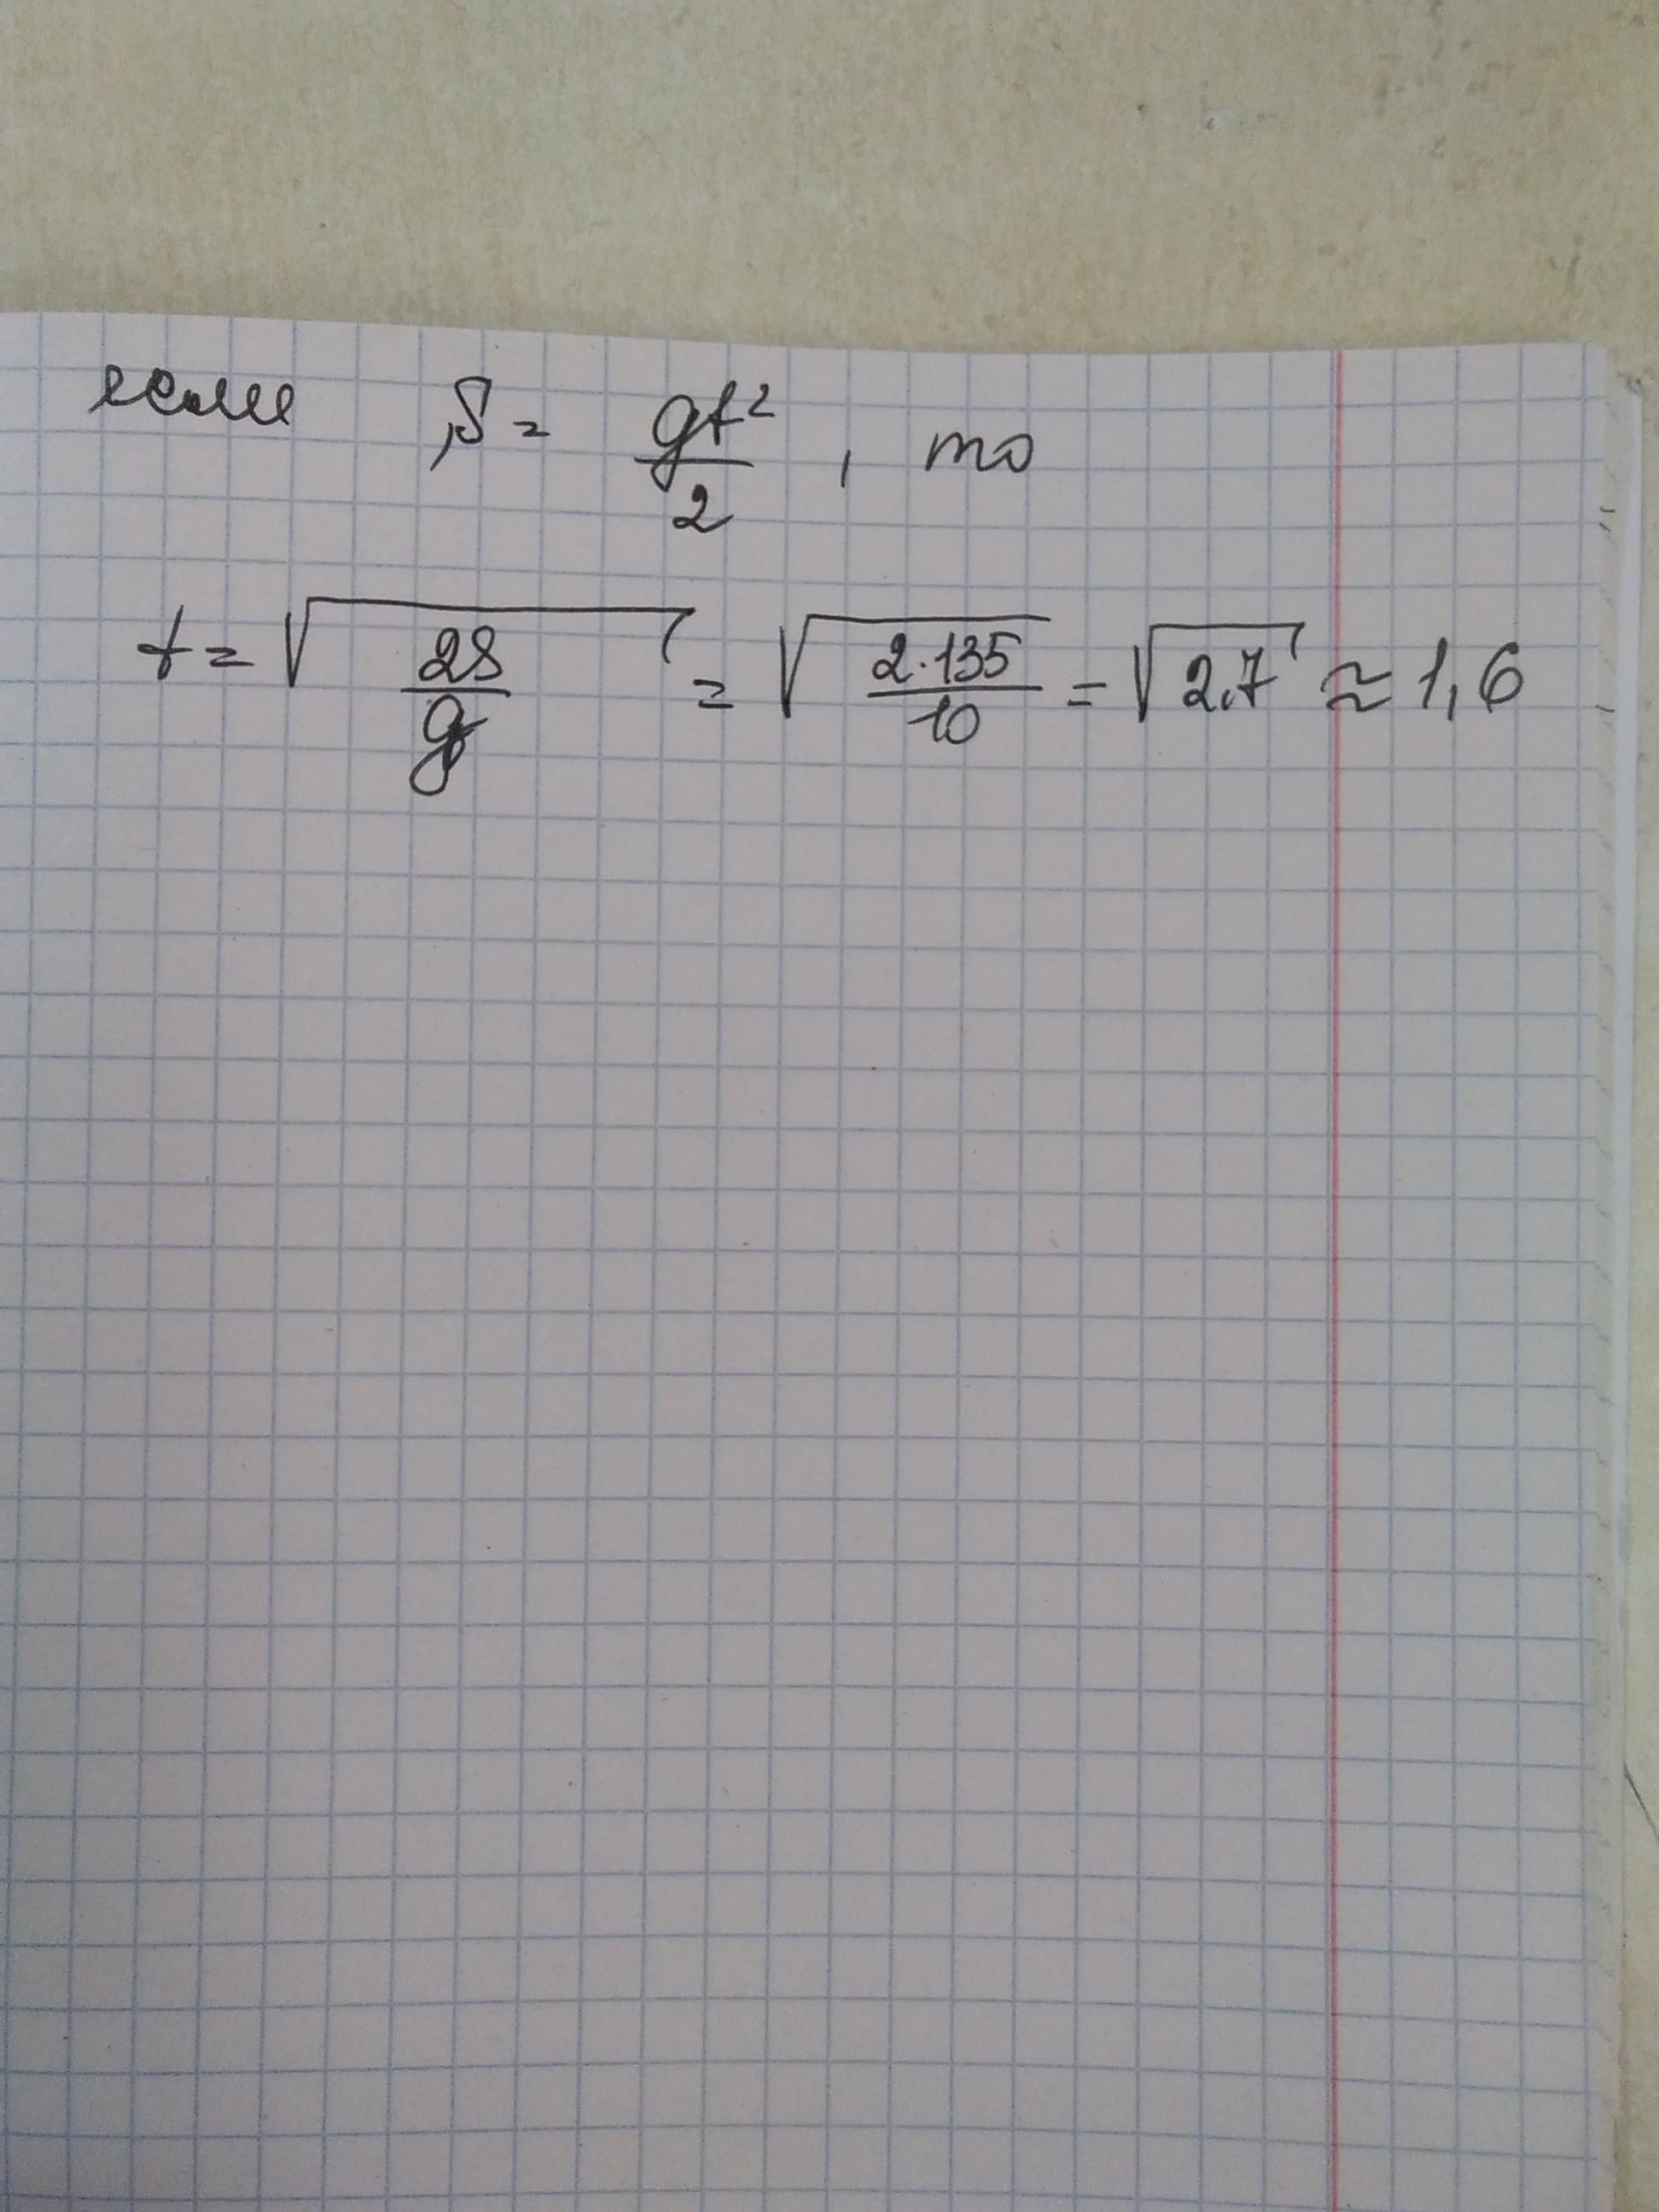 если S = gt²/2, то
t = √(2S/g) = √(2·135/10) = √2.7 ≈ 1,6